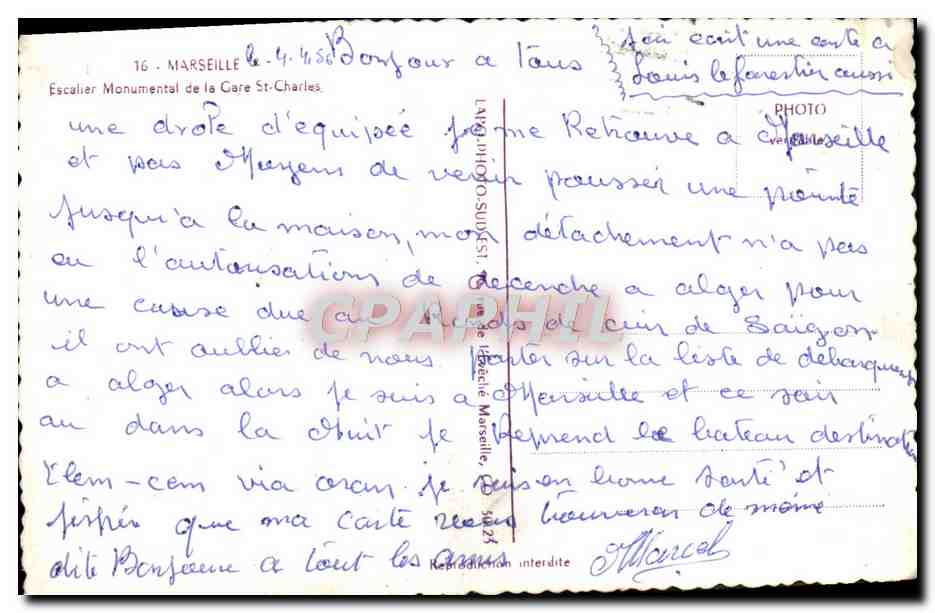 16 - MARSEILLE le 4.4.50 Bonjour a Tous
Escalier Monumental de la Gare St-Charles
j'ai écrit une carte a
Louis le forestier aussi
PHOTO
véritable
une drole d'equipée je me Retrouve a Marseille
et pas Moyens de venir pousser une pointe
jusqu'a la maison, mon détachement n'a pas
eu l'autorisations de decendre a alger pour
une cause due au Ronds de cuir de Saïgon
il ont oublier de nous porter sur la liste de débarquement
a alger alors je suis a Marseille et ce soir
ou dans la Nuit je Reprend le bateau destination
Tlem-cem via oran je suis en bonne santé et
j'espére que ma carte vous trouveras de même
dite Bonjour a tout les amis
Marcel
LAPIE-PHOTO-SUD-EST, rue de l'Évêché Marseille,
Reproduction interdite
CPAPHIL